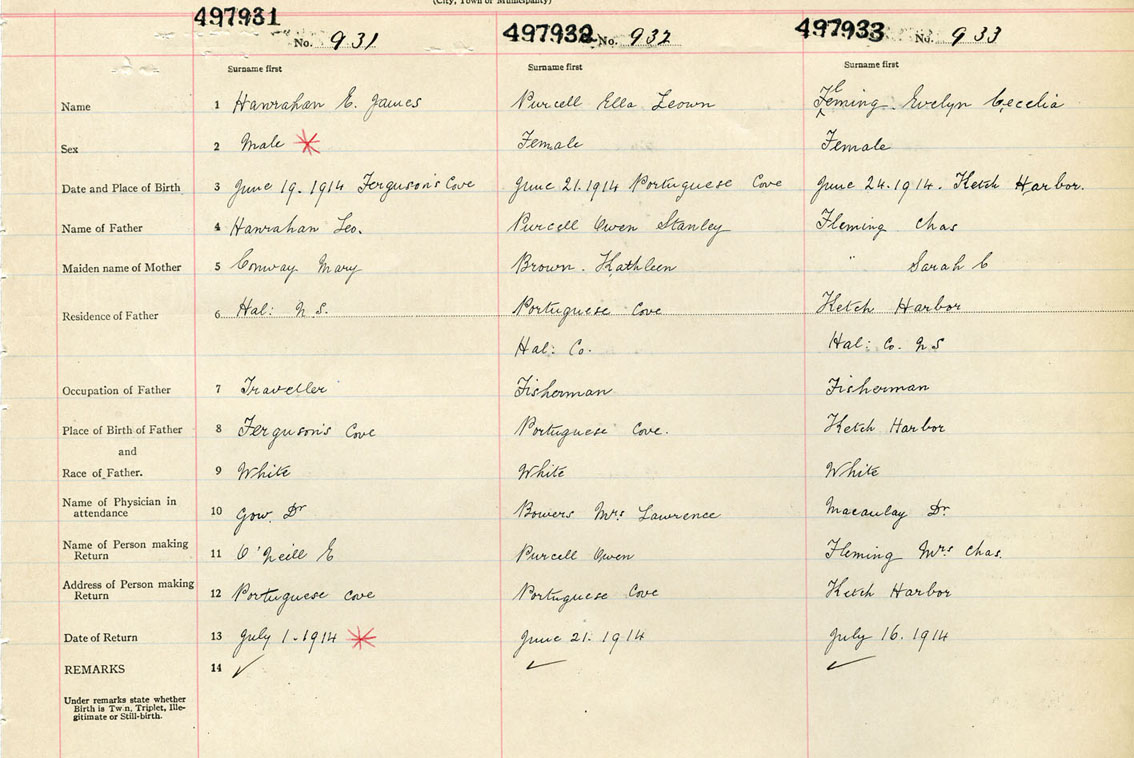 (City, Town or Municipality)
497931 No. 931 497932 No. 932 497933 No. 933
Surname first Surname first Surname first
Name 1 Hanrahan E. James Purcell Ella Leown Fleming Evelyn Cecelia
Sex 2 Male Female Female
Date and Place of Birth 3 June 19. 1914 Ferguson's Cove June 21. 1914 Portuguese Cove June 24. 1914. Ketch Harbor.
Name of Father 4 Hanrahan Leo. Purcell Owen Stanley Fleming Chas
Maiden name of Mother 5 Conway Mary Brown. Kathleen " Sarah C
Residence of Father 6 Hal: N.S. Portuguese Cove Ketch Harbor
Hal: Co. Hal: Co. N S
Occupation of Father 7 Traveller Fisherman Fisherman
Place of Birth of Father 8 Ferguson's Cove Portuguese Cove. Ketch Harbor
and
Race of Father. 9 White White White
Name of Physician in
attendance 10 Gow. Dr Bowers Mrs Lawrence Macaulay Dr.
Name of Person making
Return 11 O'Neill E Purcell Owen Fleming Mrs Chas.
Address of Person making
Return 12 Portuguese Cove Portuguese Cove Ketch Harbor
Date of Return 13 July 1. 1914 June 21. 1914 July 16. 1914
REMARKS 14 ✓ ✓ ✓
Under remarks state whether
Birth is Twin, Triplet, Ille-
gitimate or Still-birth.